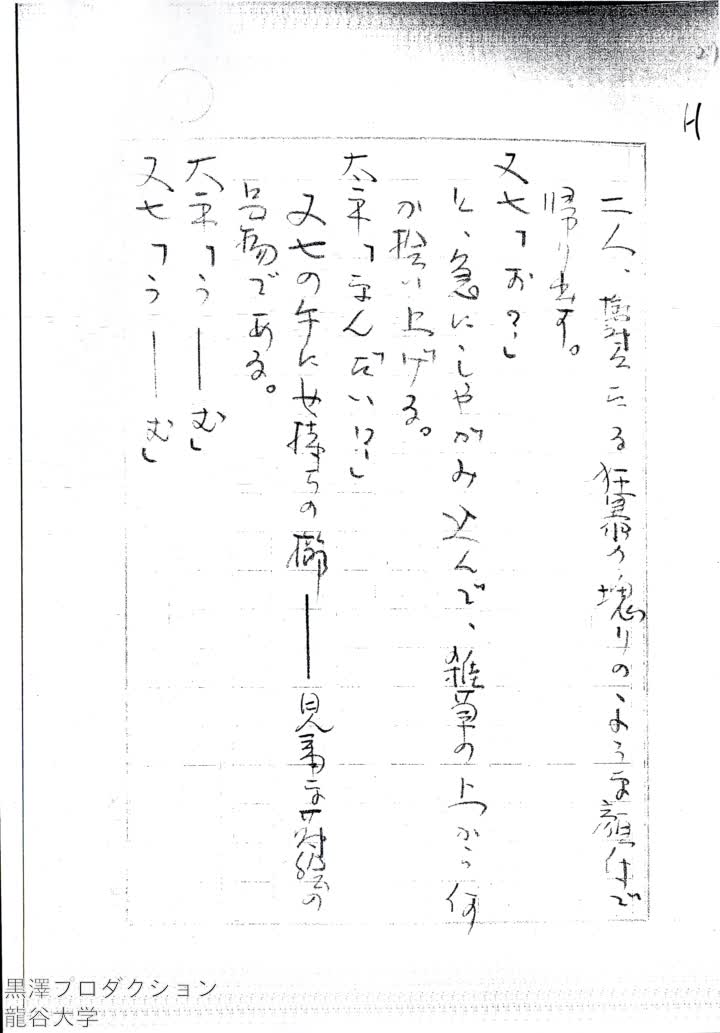 H
二人、憮然たる狂暴の塊りのような顔付で
帰り出す。
又七「お?」
と、急にしゃがみ込んで、雑草の上から何
か拾い上げる。
太平「なんだい!?」
又七の手に女持ちの櫛——見事な蒔絵の
品物である。
太平「うーーむ」
又七「うーーむ」
黒澤プロダクション
龍谷大学